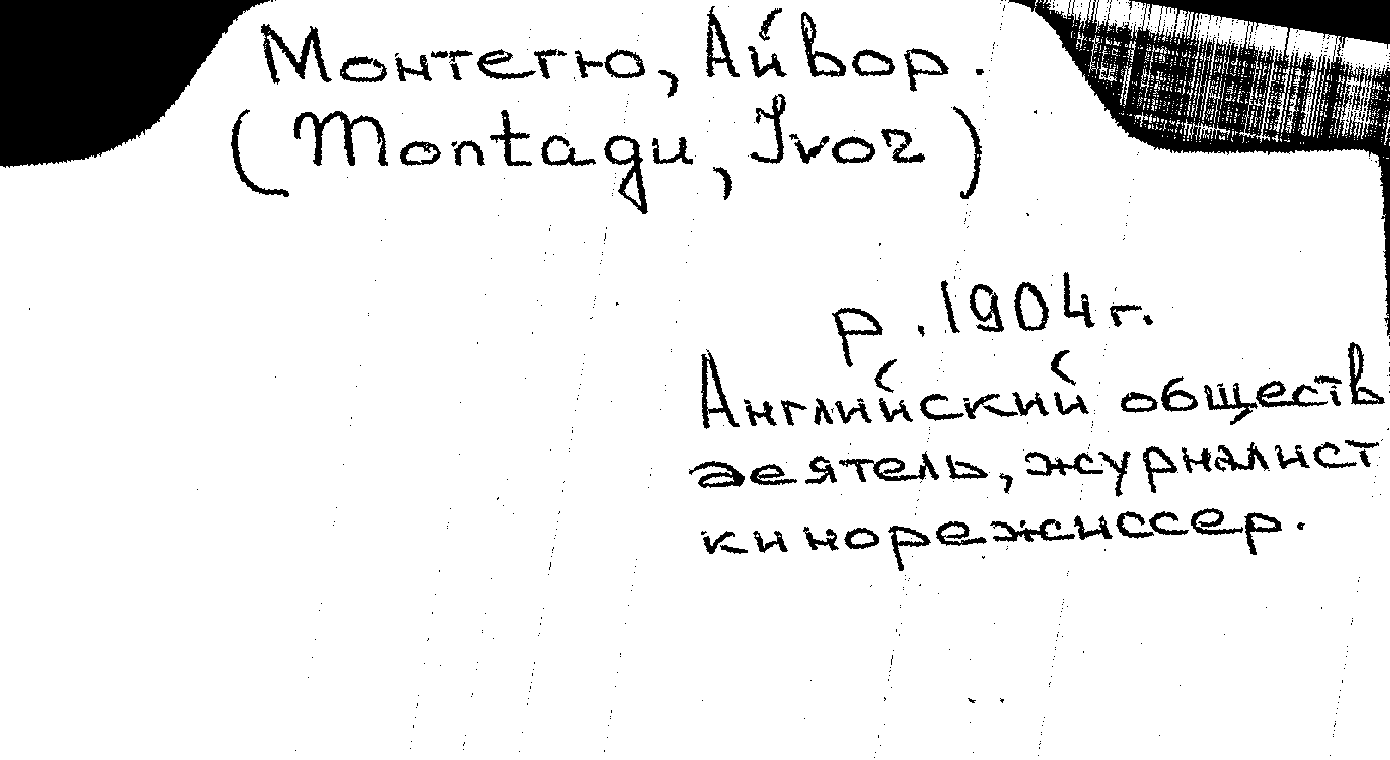 Монтегю, Айвор.
(Montagu, Ivor)
р. 1904 г.
Английский обществ
деятель, журналист
кинорежиссер.